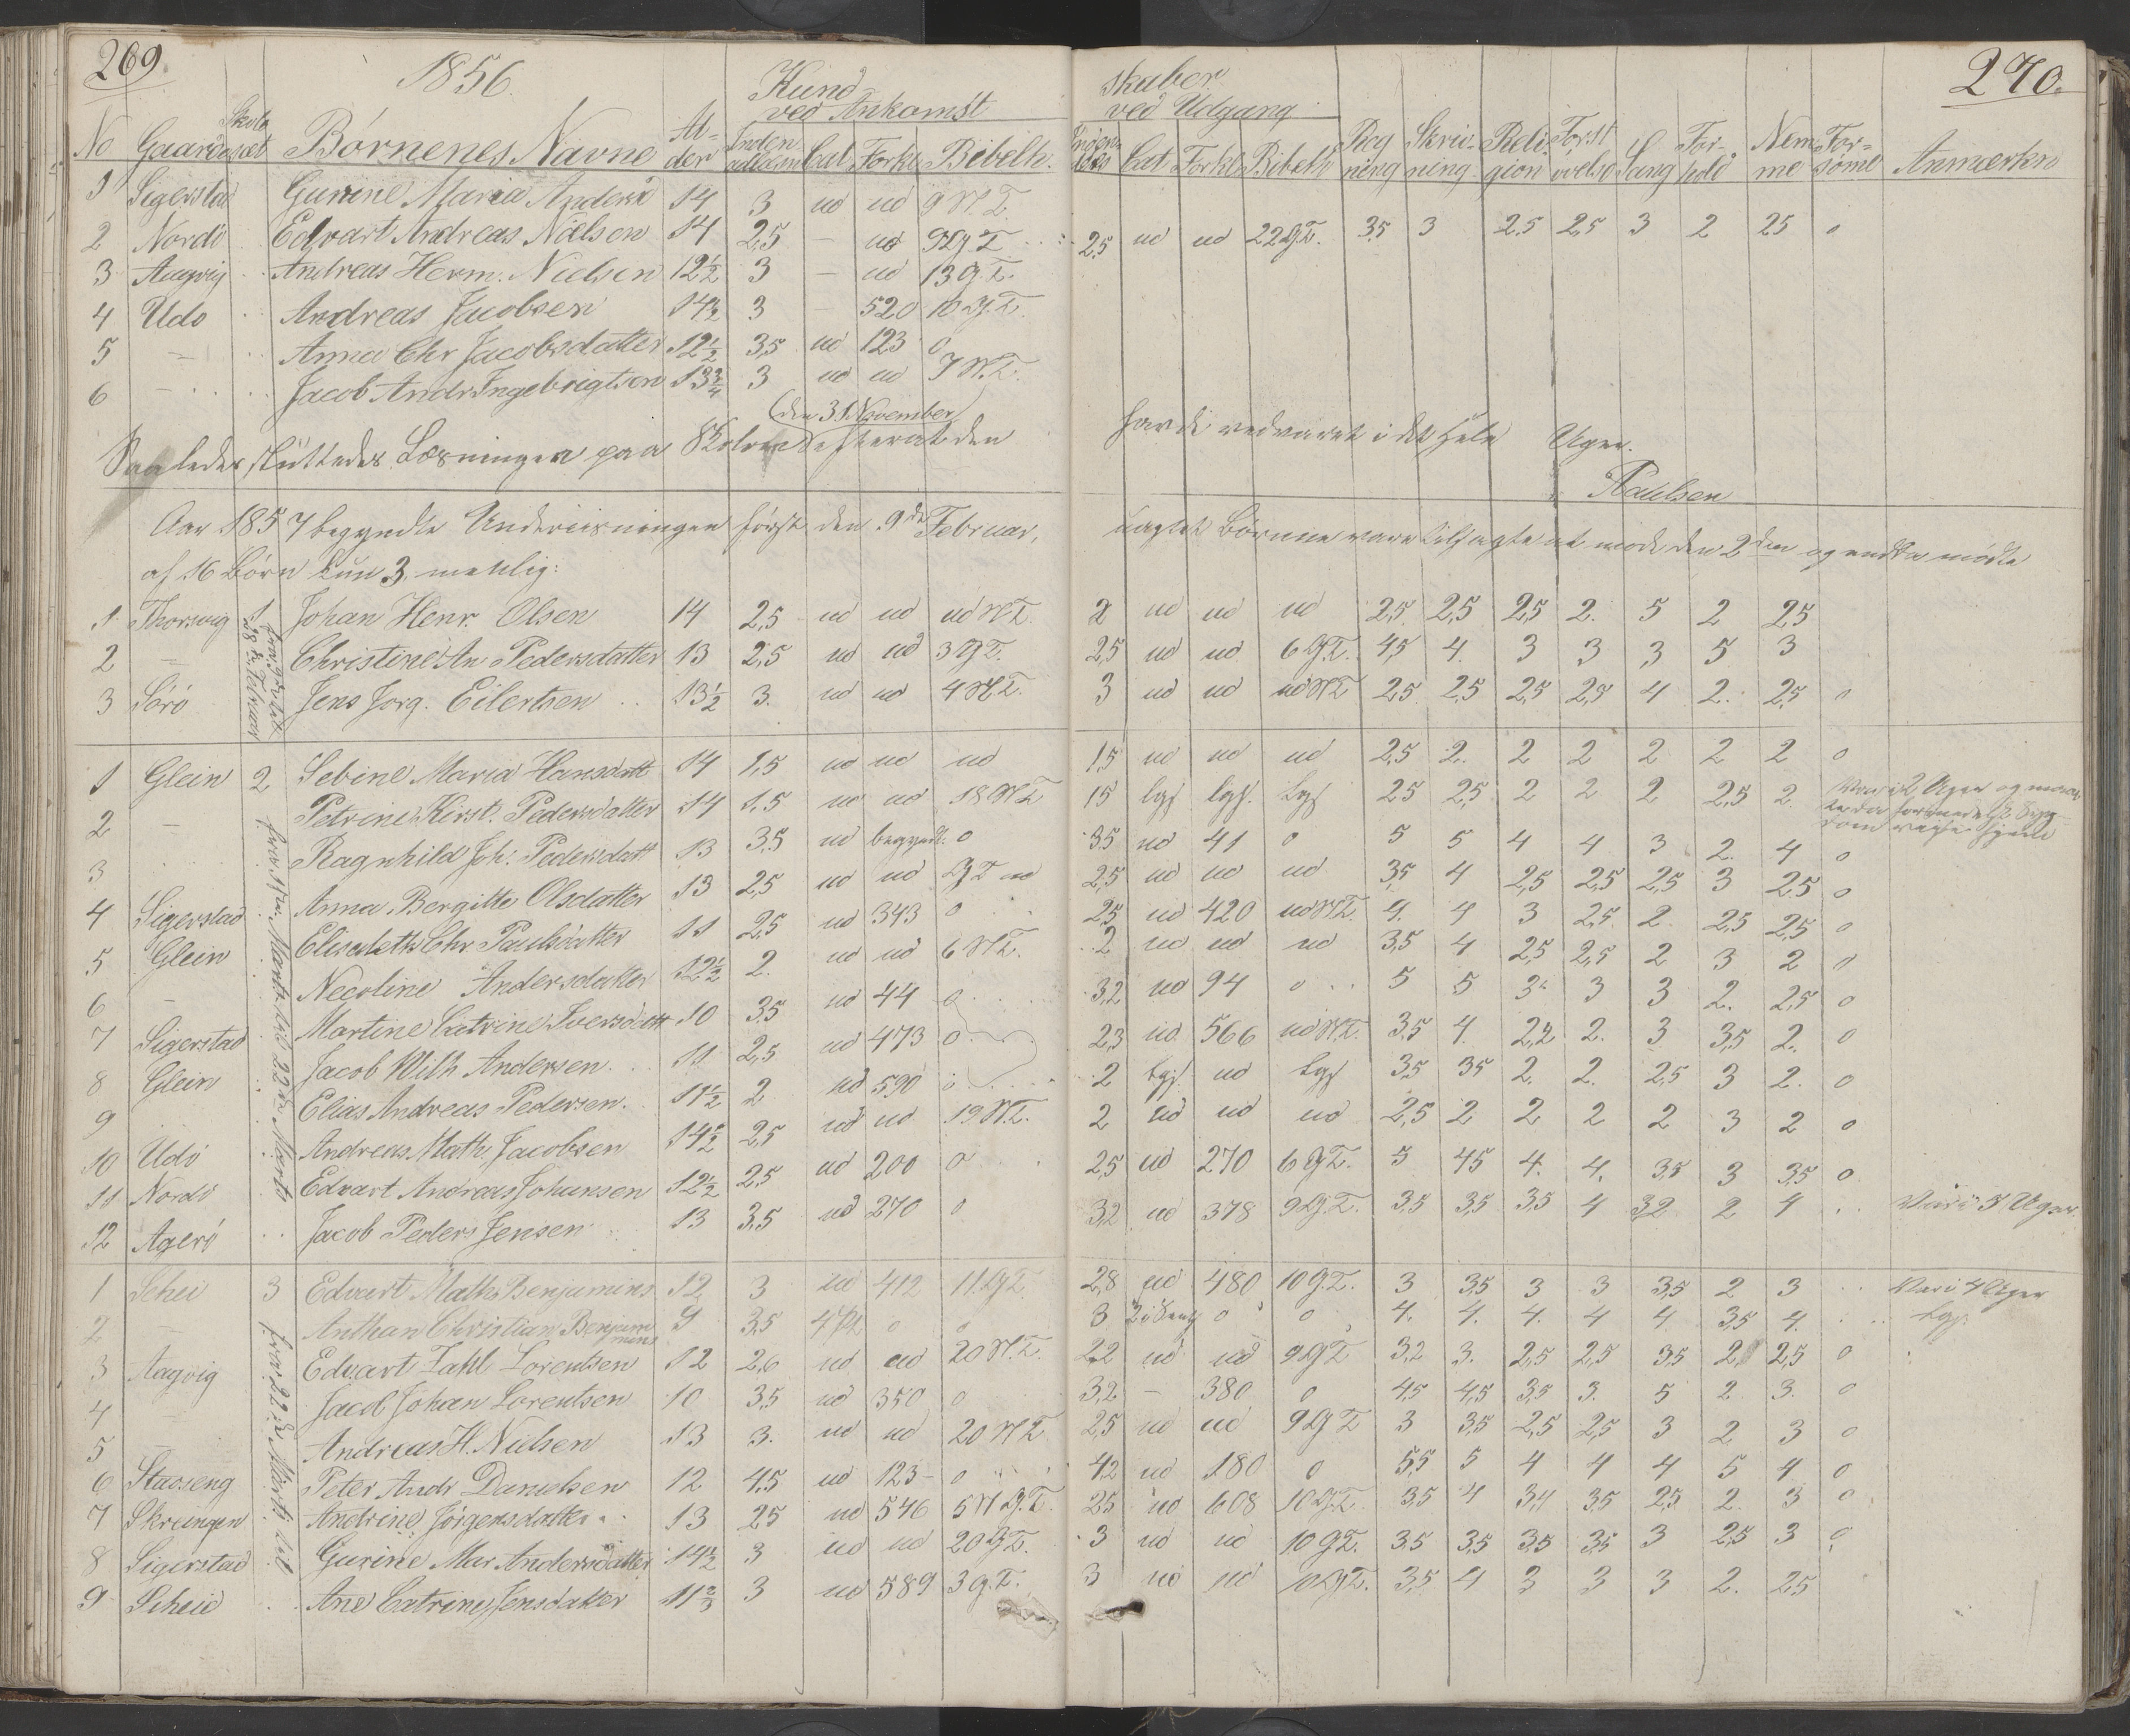 269
1856
Kund
ved Ankomst
No Gaard Skole sæt Børnenes Navne Al-der Inden ad Cat Forkl Bibelh.
1 Sigerstad Gurine Maria Anders 14 3 ud ud 9 N.T.
2 Nordø Edvart Andreas Nielsen 14 2,5 — ud 9 G T
3 Aagvig Andreas Herm. Nielsen 12½ 3 — ud 13 G.T.
4 Udø Andreas Jacobsen 14½ 3 — 520 10 G.T.
5 — Anna Chr Jacobsdatter 12½ 3,5 ud 123 0
6 — Jacob Andr Ingebrigtsen 13¾ 3 ud ud 7 N.T.
(den 31 November)
Saaledes sluttedes Læsningen paa Skolen efterat den
Aar 1857 begyndte Underviisningen først den 9de Februar,
af 16 Børn kun 3, mehlig:
1 Thorsvig 1 Johan Henr. Olsen 14 2,5 ud ud ud N.T.
2 — Christine An Pedersdatter 13 2,5 ud ud 3 G T.
3 Sørø Jens Jørg. Eilertsen 13½ 3. ud ud 4 N T.
1 Glein 2 Sebine Maria Hansdatt 14 1,5 ud ud ud
2 — Petrine Kirst. Pedersdatter 14 1,5 ud ud 18 N T
3 Ragnhild Joh. Pedersdatt 13 3,5 ud begyndt. 0
4 Sigerstad Anna Bergitte Olsdatter 13 2,5 ud ud G T ud
5 Glein Elisabeth Chr Paulsdatter 11 2,5 ud 343 0
6 — Necoline Andersdatter 12½ 2. ud ud 6 N T.
7 Sigerstad Martine Catrine Iversdatt 10 3,5 ud 44 0
8 Glein Jacob Wilh Andersen 11 2,5 ud 473 0
9 Elias Andreas Pedersen. 11½ 2 ud 590 0
10 Udø Andreas Math. Jacobsen 14½ 2,5 ud ud 19 N.T.
11 Nordø Edvart Andreas Johansen 12½ 2,5 ud 200 0
12 Agerø Jacob Peders Jensen 13 3,5 ud 270 0
fra 9de Martz til 22de Martz
1 Schei 3 Edvart Math Benjamins 12 3 ud 412 11 G T.
2 — Anthan Christian Benjamins 9 3,5 4 Pt 0 0
3 Aagvig Edvart Zahl Lorentsen 12 2,6 ud ud 20 N.T.
4 — Jacob Johan Lorentsen 10 3,5 ud 350 0
5 — Andreas H. Nielsen 13 3. ud ud 20 N T
6 Stavseng Peter Andr Danielsen 12 4,5 ud 123 0
7 Skreingen Andrine Jørgensdatter 13 2,5 ud 546 5 G.T.
8 Sigerstad Gurine Mar Andersdatter 14½ 3 ud ud 20 G T.
9 Scheie Ane Catrine Jensdatter 11⅔ 3 ud 589 3 G.T.
fra 22de Martz til
270.
skaber
ved Udgang
Cat Forkl Bibelh Reg ning Skriv-ning Reli-gion Forst øvelse Sang For-hold Nem me For-sømt Anmærkn
2,5 ud ud 22 G T. 3,5 3 2,5 2,5 3 2 2,5 0
havde vedvaret i det Hele Uger.
Paulsen
uagtet Børnene vare tilsagte at møde den 2den og endda mødte
2 ud ud ud 2,5 2,5 2,5 2. 5 2 2,5
2,5 ud ud 6 G.T. 4,5 4. 3 3 3 5 3
3 ud ud ud N T 2,5 2,5 2,5 2,5 4 2. 2,5 0
1,5 ud ud ud 2,5 2. 2 2 2 2 2 0
1,5 lgs. lgs. lgs 2,5 2,5 2 2 2 2,5 2. Var i 2 Uger og maa
3,5 ud 41 0 5 5 4 4 3 2. 4 0
2,5 ud ud ud 3,5 4 2,5 2,5 2,5 3 2,5 0
2,5 ud 420 ud N T. 4. 4 3 2,5 2. 2,5 2,5 0
2 ud ud ud 3,5 4 2,5 2,5 2 3 2 0
3,2 ud 94 0 5 5 3. 3 3 2. 2,5 0
2,3 ud. 566 ud N.T. 3,5 4. 2,2 2. 3 3,5 2. 0
2 lgs. ud lgs 3,5 3,5 2. 2. 2,5 3 2. 0
2 ud ud ud 2,5 2 2 2 2 3 2 0
2,5 ud 270 6 G T. 5 4,5 4. 4. 3,5 3 3,5 0
3,2 ud 378 9 G.T. 3,5 3,5 3,5 4 3,2 2 4 Var i 5 Uger.
2,8 ud 480 10 G.T. 3 3,5 3 3 3,5 2 3 Var i 4 Uger
3 0 0 4. 4. 4. 4 4. 3,5 4. lgs.
2,2 ud ud 9 G T 3,2 3. 2,5 2,5 3,5 2 2,5 0
3,2 — 380 0 4,5 4,5 3,5 3. 5 2 3. 0
2,5 ud ud 9 G T 3 3,5 2,5 2,5 3 2 3 0
4,2 ud 180 0 5,5 5 4 4 4 5 4 0
2,5 ud 608 10 G.T. 3,5 4 3,4 3,5 2,5 2. 3 0
3 ud ud 10 G T. 3,5 3,5 3,5 3,5 3 2,5 3 0
3 ud ud 10 G T. 3,5 4 3 3 3 2. 2,5